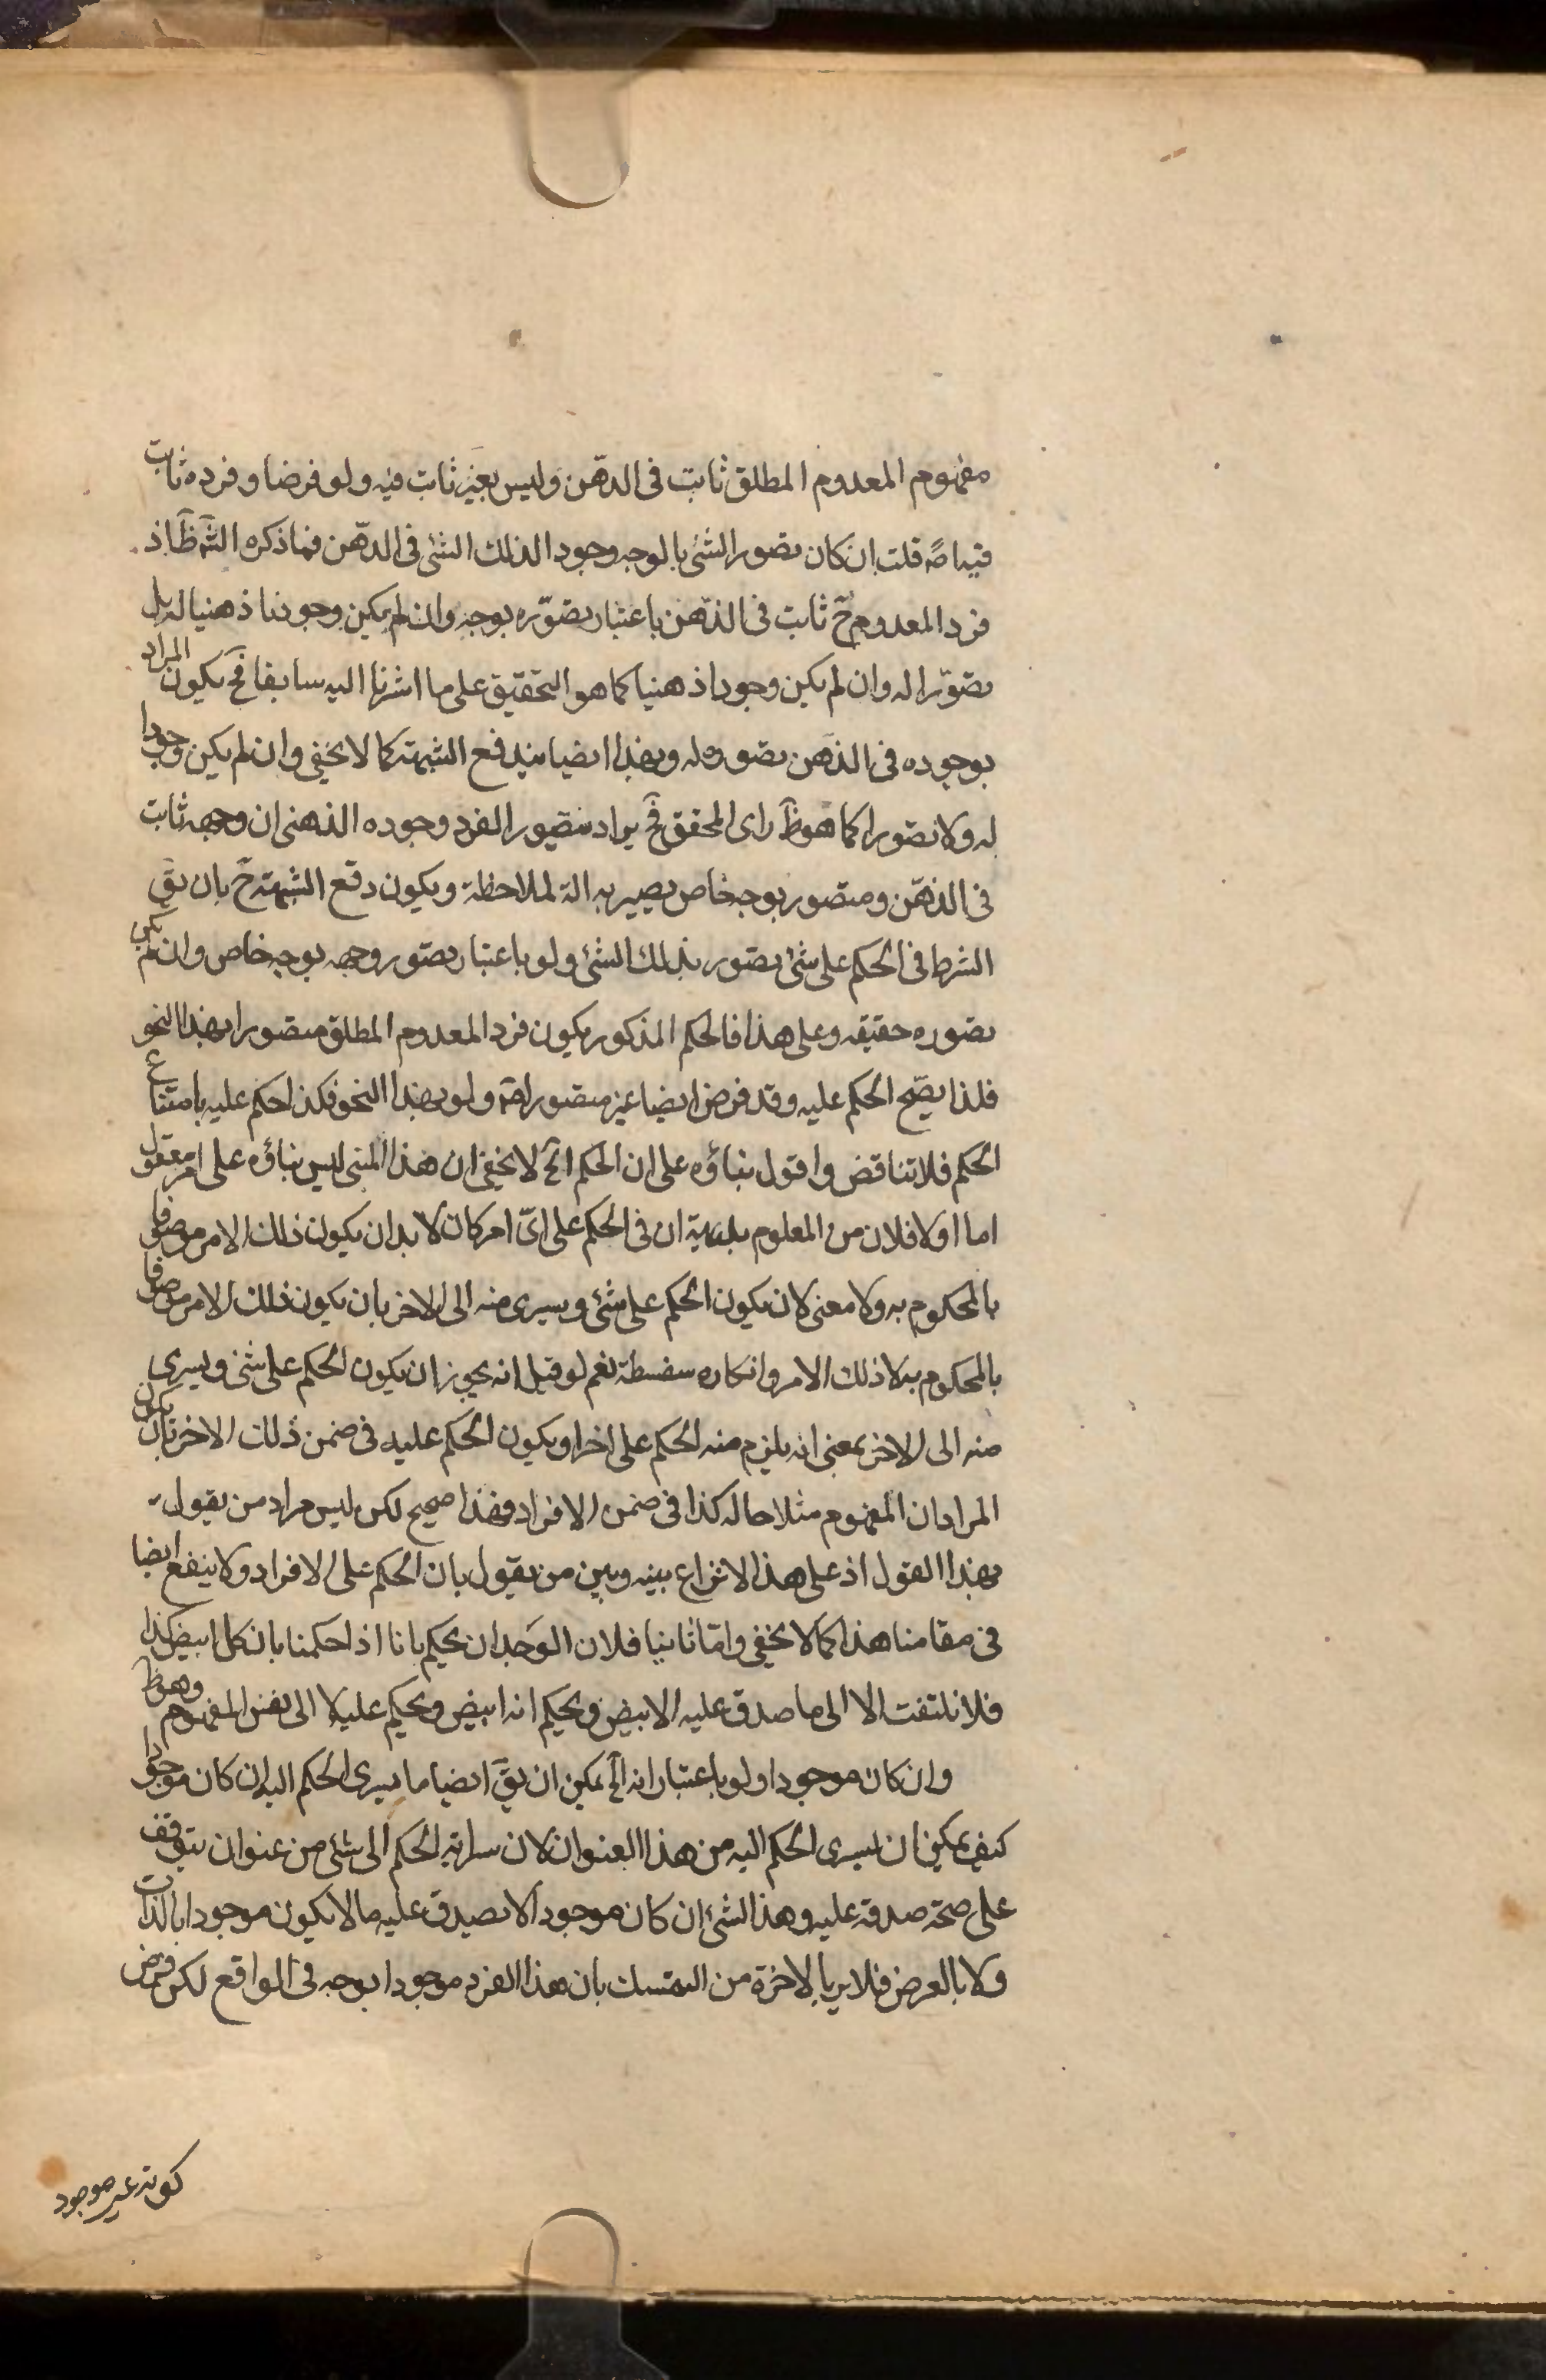 مفهوم المعدوم المطلق ثابت فى الذهن وليس بغير ثابت فيه ولو فرضا وفرده ثابت
فيه اصة قلت ان كان تصور الشئ بالوجه وجودا لذلك الشئ فى الذهن فما ذكره الشم ظ اذ
فرد المعدوم ح ثابت فى الذهن باعتبار تصوره بوجه وان لم يكن وجودنا ذهنيا له بل
تصورا له وان لم يكن وجودا ذهنيا كما هو التحقيق على ما اشرنا اليه سابقا فح يكون المراد
بوجوده فى الذهن تصوره له وبهذا ايضا يندفع الشبهة كما لا يخفى وان لم يكن وجودا
له ولا تصورا كما هو ظ راى المحقق فح يراد بتصور الفرد وجوده الذهنى ان وجهه ثابت
فى الذهن ومتصور بوجه خاص يصير به الة لملاحظة ويكون دفع الشبهة ح بان يق
الشرط فى الحكم على شئ تصور بذلك الشئ ولو باعتبار تصور وجهه بوجه خاص وان لم يكن
تصوره حقيقه وعلى هذا فالحكم المذكور يكون فرد المعدوم المطلق متصورا بهذا النحو
فلذا يصح الحكم عليه وقد فرض ايضا غير متصور اصة ولو بهذا النحو فكذا حكم عليه بامتناع
الحكم فلا تناقض واقول بناؤه على ان الحكم الخ لا يخفى ان هذا المبنى ليس بناؤه على امر معقول
اما اولا فلان من المعلوم بديهية ان فى الحكم على اىّ امر كان لا بد ان يكون ذلك الامر موصوفا
بالمحكوم به ولا معنى لان يكون الحكم على شئ ويسرى منه الى الاخر بان يكون ذلك الامر موصوفا
بالمحكوم به لا ذلك الامر وانكاره سفسطة نعم لو قيل انه يجوز ان يكون الحكم على شئ ويسرى
منه الى الاخر بمعنى انه يلزم منه الحكم على اخر او يكون الحكم عليه فى ضمن ذلك الاخر بان يكون
المراد ان المفهوم مثلا حاله كذا فى ضمن الافراد فهذا صحيح لكن ليس مراد من يقول
بهذا القول اذ على هذا لا نزاع بينه وبين من يقول بان الحكم على الافراد ولا ينفع ايضا
فى مقامنا هذا كما لا يخفى وامّا ثانيا فلان الوجدان يحكم بانا اذا حكمنا بان كل ابيض كذا
فلا نلتفت الا الى ما صدق عليه الابيض ونحكم انه ابيض ونحكم عليه لا الى نفس المفهوم وهو ظ
وان كان موجودا ولو باعتبار انه الخ يمكن ان يق ايضا ما يسرى الحكم اليه ان كان موجودا
كيف يمكن ان يسرى الحكم اليه من هذا العنوان لان سراية الحكم الى شئ من عنوان يتوقف
على صحة صدقه عليه وهذا الشئ ان كان موجودا لا يصدق عليه ما لا يكون موجودا بالذات
ولا بالعرض فلا بد بالاخرة من التمسك بان هذا الفرد موجودا بوجه فى الواقع لكن فرض
كونه غير موجود